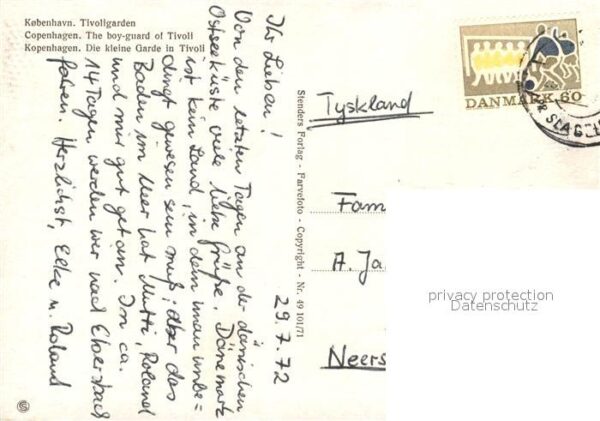 København. Tivoligarden
Copenhagen. The boy-guard of Tivoli
Kopenhagen. Die kleine Garde in Tivoli
29.7.72
Ihr Lieben!
Von den letzten Tagen an der dänischen
Ostseeküste viele liebe Grüße. Dänemark
ist kein Land, in dem man unbe=
dingt gewesen sein muß; aber das
Baden im Meer hat Mutti, Roland
und mir gut getan. In ca.
14 Tagen werden wir nach Ebersbach
fahren. Herzlichst, Elke u. Roland
Stenders Forlag - Farvefoto - Copyright - Nr. 49 101/71
DANMARK 60
SLAGEL
Tyskland
Fam
A. Ja
Neers
privacy protection
Datenschutz